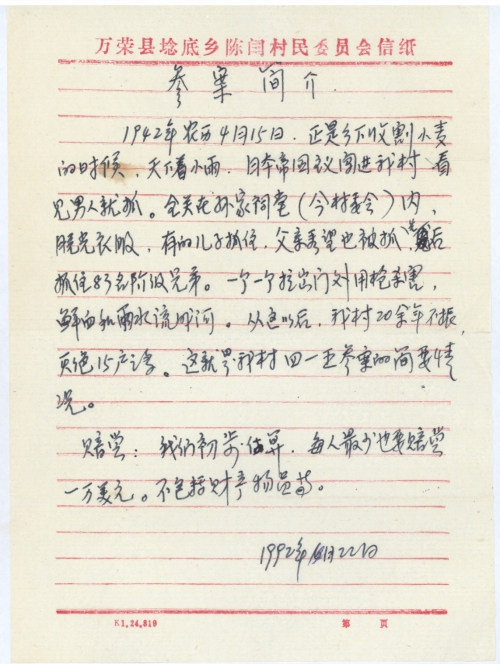 万荣县埝底乡陈闫村民委员会信纸
参案简介
1942年农历4月15日，正是乡下收割小麦
的时候，天下着小雨，日本帝国议闯进我村，看
见男人就抓。全关在孙家祠堂（今村委会）内，
脱光衣服，有的儿子抓住，父亲看望也被抓进，后
抓住83名阶级兄弟。一个一个拉出门外用枪杀害，
鲜血和雨水流成河。从这以后，我村20余年不振，
灭绝15户之多。这就是我村四一五参案的简要情
况。
赔尝：我们初步估算，每人最少也要赔尝
一万美元。不包括财产物品等。
1992年 月22日
K1,24,819
第 页